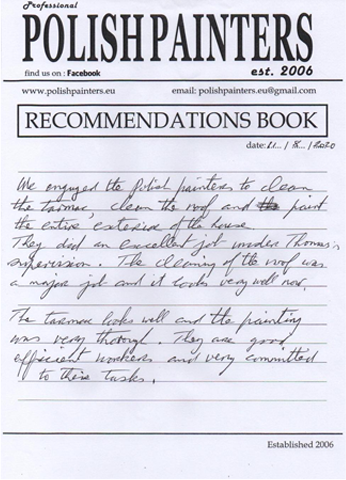 Professional
POLISH PAINTERS
find us on : Facebook
est. 2006
www.polishpainters.eu
email: polishpainters.eu@gmail.com
RECOMMENDATIONS BOOK
date:
We engaged the polish painters to clean
the tarmac, clean the roof and the paint
the entire exterior of the house.
They did an excellent job under Thomas's
supervision. The cleaning of the roof was
a major job and it looks very well now.
The tarmac looks well and the painting
was very thorough. They are good
efficient workers and very committed
to their tasks.
Established 2006